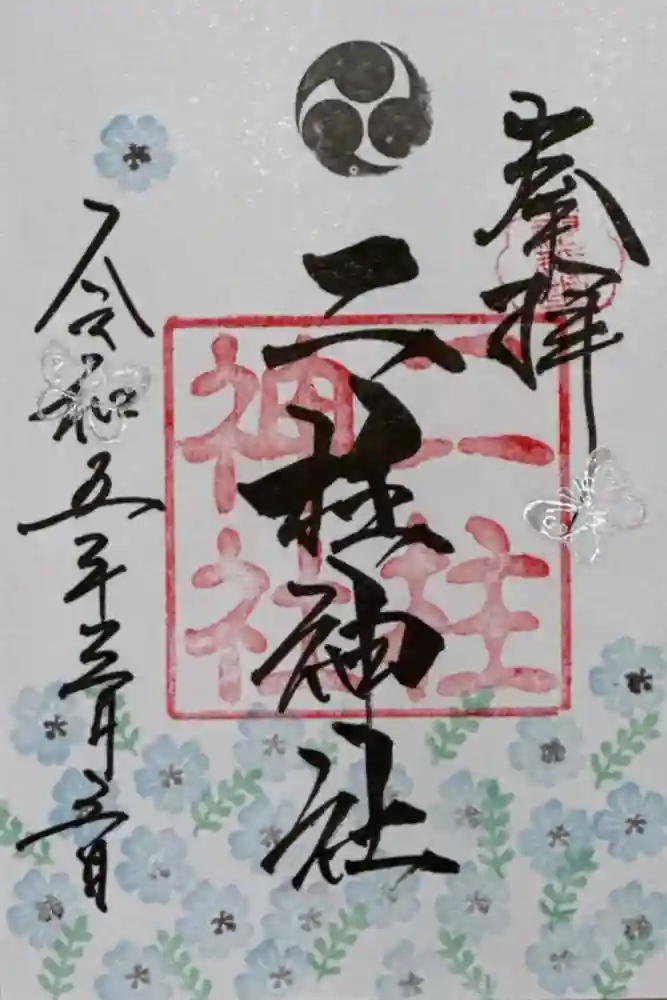 奉拝
二柱神社
二柱
神社
令和五年三月三日